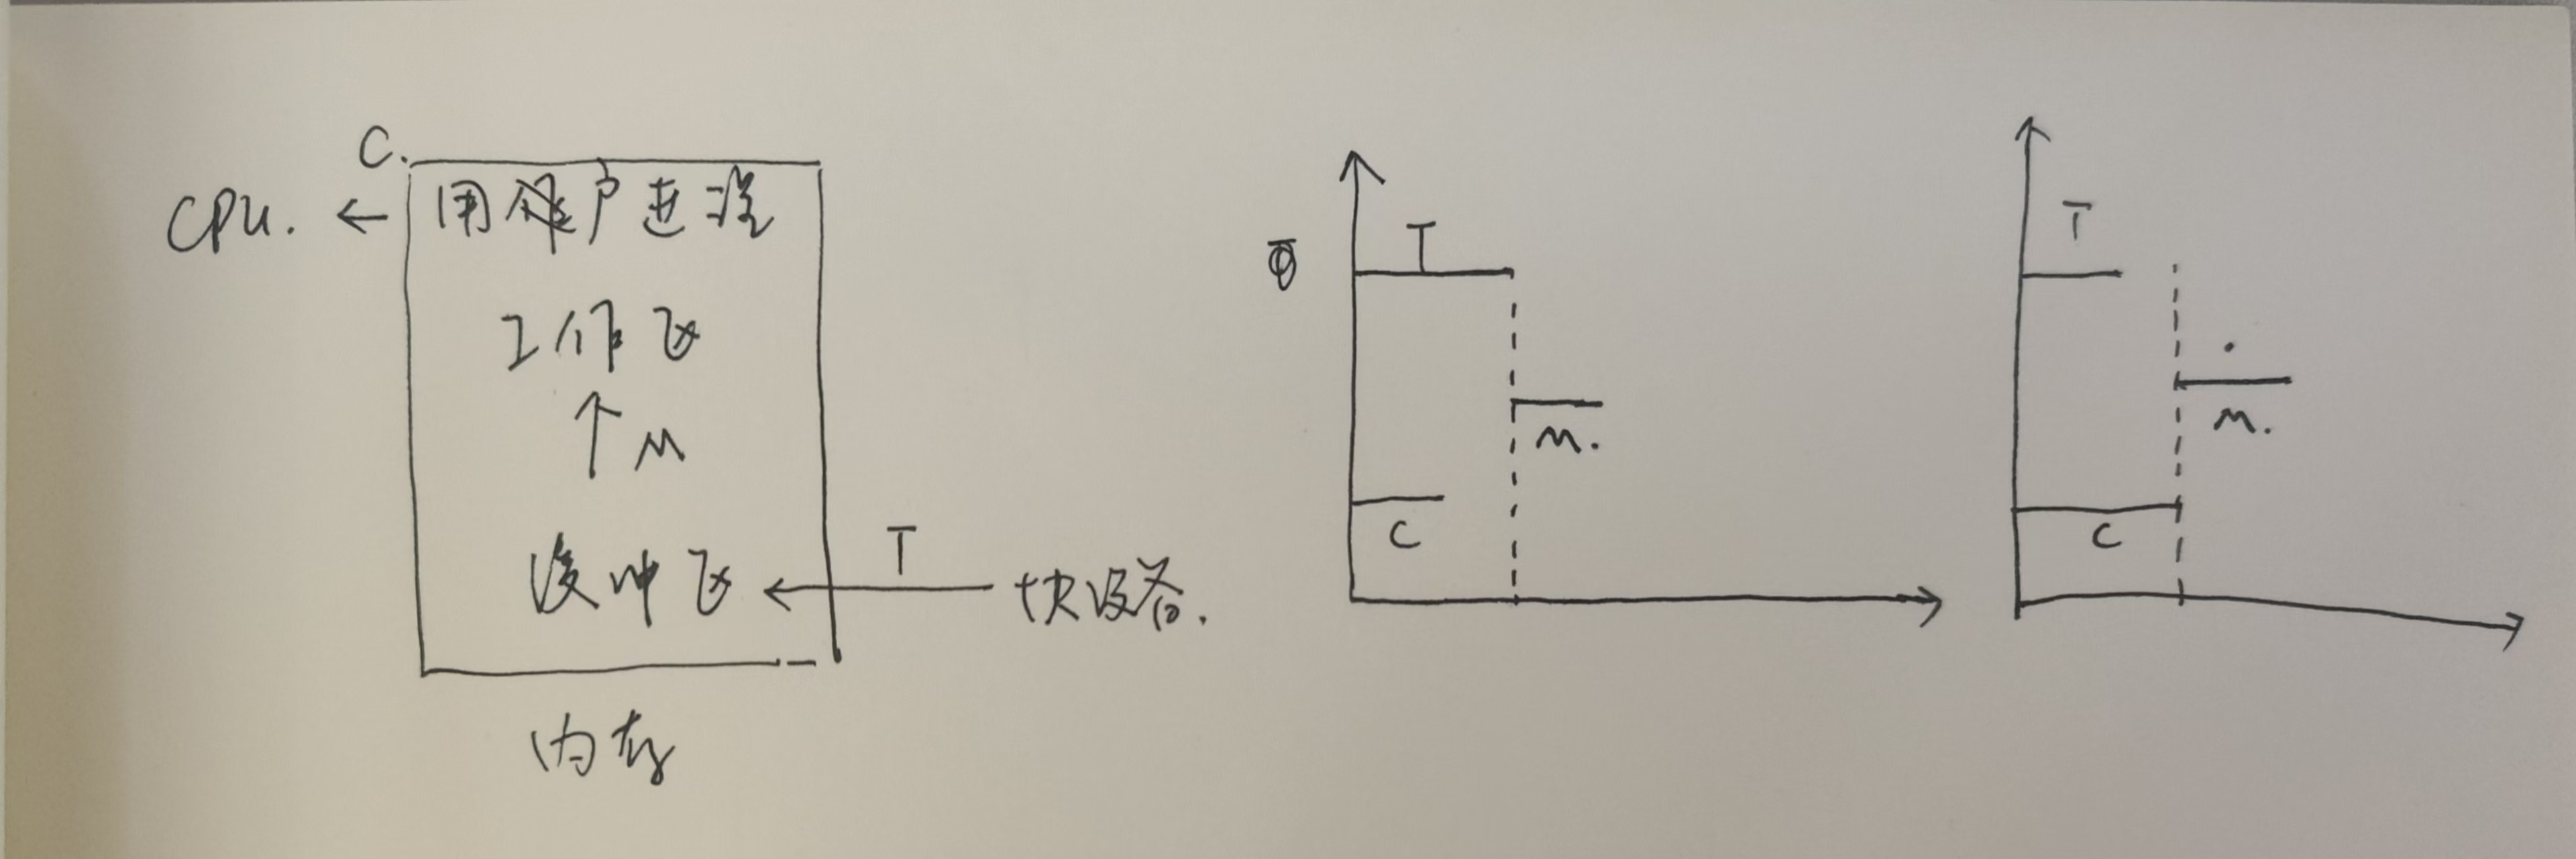 C.
CPU. ← 用户进程
工作区
↑ M
缓冲区 ← T 块设备.
内存
T
M.
C
T
M.
C